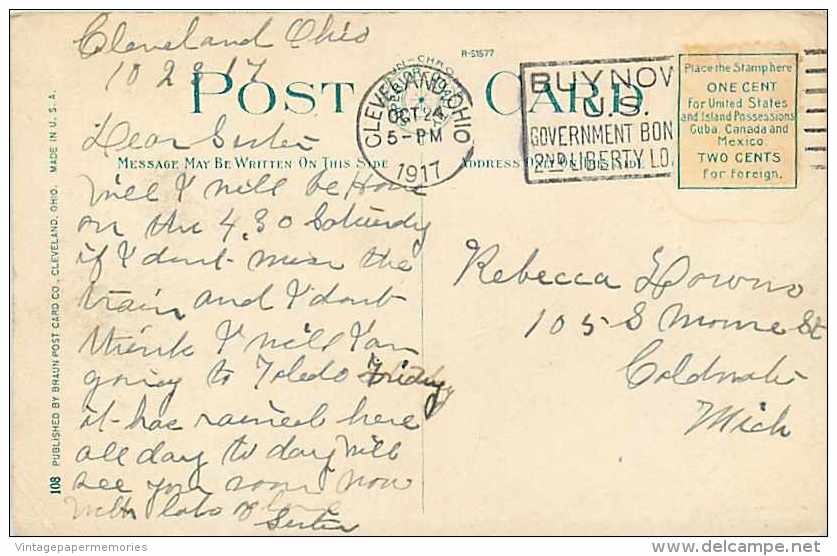 Cleveland Ohio
10 2 17
POST CARD
R-51577
CLEVELAND, OHIO
OCT 24
5-PM
1917
BUY NOW
U.S.
GOVERNMENT BON
2ND LIBERTY LO
Place the Stamp here
ONE CENT
for United States
and Island Possessions
Cuba, Canada and
Mexico.
TWO CENTS
for Foreign.
MESSAGE MAY BE WRITTEN ON THIS SIDE
ADDRESS ONLY
Dear Sister
Will I will be Home
on the 4.30 Saturdy
if I dont miss the
train and I dont
think I will I am
going to Toledo Friday
it has rained here
all day to day will
see you soon now
with lots of love
Sister
Rebecca Downs
105 S Monroe St
Coldwater
Mich
108 PUBLISHED BY BRAUN POST CARD CO., CLEVELAND, OHIO. MADE IN U.S.A.
Vintagepapermemories
www.delcampe.net